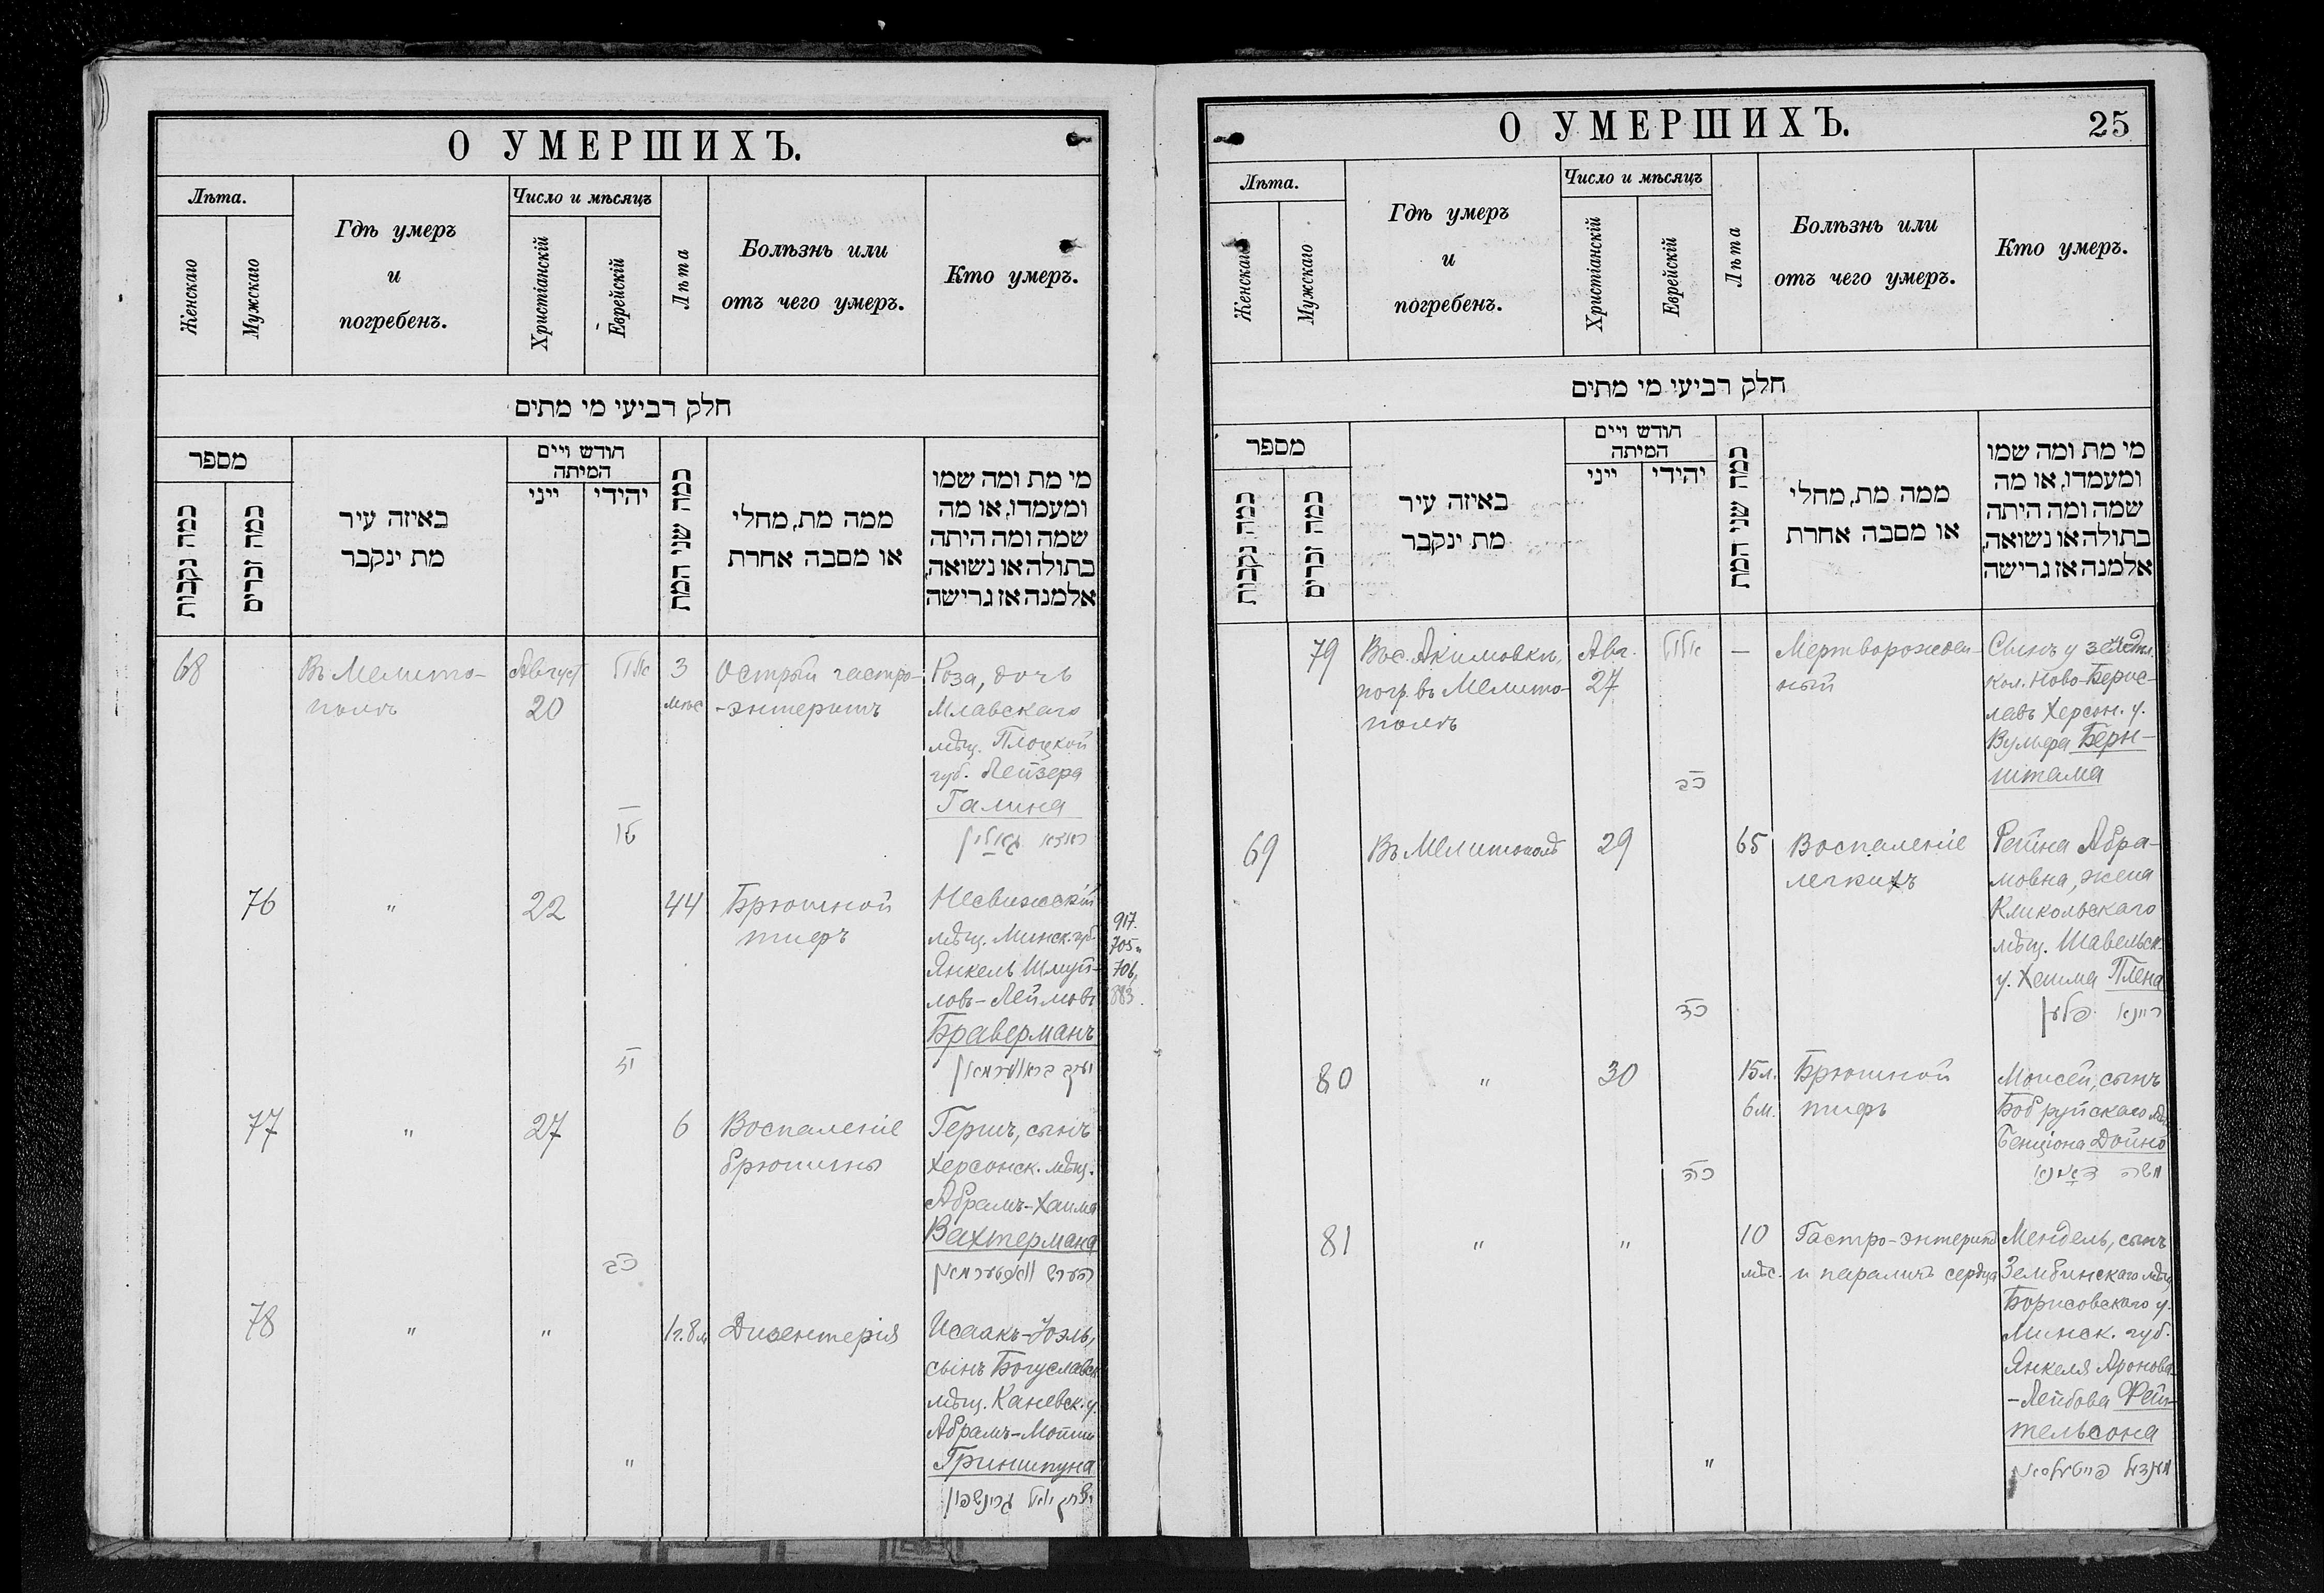 О УМЕРШИХЪ.
Лѣта.
Женскаго
Мужскаго
Гдѣ умеръ
и
погребенъ.
Число и мѣсяцъ
Христіанскій
Еврейскій
Лѣта
Болѣзнь или
отъ чего умеръ.
Кто умеръ.
חלק רביעי מי מתים
מספר
כמה נקבות
כמה זכרים
באיזה עיר
מת ינקבר
חודש ויים
המיתה
ייני
יהודי
כמה שני המת
ממה מת, מחלי
או מסבה אחרת
מי מת ומה שמו
ומעמדו, או מה
שמה ומה היתה
בתולה או נשואה,
אלמנה אז גרישה
68
Въ Мелито-
полѣ
Август
20
אלול
טז
3
мѣс
Острый гастро-
-энтеритъ
Роза, дочь
Млавскаго
мѣщ. Плоцкой
губ. Лейзера
Галина
76
"
22
יח
44
Брюшной
тифъ
Несвижскій
мѣщ. Минск. губ.
Янкель Шмуй-
ловъ-
Браверманъ
917.
705.
706.
883.
77
"
27
כג
6
Воспаленіе
брюшины
Гершъ, сынъ
Херсонск. мѣщ.
Абрамъ-Хаима
Вахтермана
הערש וואכטערמאן
78
"
"
"
1г.8м
Дизентерія
Исаакъ-Іоэль,
сынъ Богуславск
мѣщ. Каневск. у.
Абрамъ-
Гриншпуна
יצחק יואל גרינשפון
О УМЕРШИХЪ.
25
Лѣта.
Женскаго
Мужскаго
Гдѣ умеръ
и
погребенъ.
Число и мѣсяцъ
Христіанскій
Еврейскій
Лѣта
Болѣзнь или
отъ чего умеръ.
Кто умеръ.
חלק רביעי מי מתים
מספר
כמה נקבות
כמה זכרים
באיזה עיר
מת ינקבר
חודש ויים
המיתה
ייני
יהודי
כמה שני המת
ממה מת, מחלי
או מסבה אחרת
מי מת ומה שמו
ומעמדו, או מה
שמה ומה היתה
בתולה או נשואה,
אלמנה אז גרישה
79
Въ с. Акимовкѣ,
погр. въ Мелито-
полѣ
Авг.
27
אלול
כג
—
Мертворожден-
ный
Сынъ у землед.
кол. Ново-Берис-
лавъ Херсон. у.
Вульфа Берн-
штама
69
Въ Мелитополѣ
29
כד
65
Воспаленіе
легкихъ
Рейна Абра-
мовна, жена
Кликольскаго
мѣщ. Шавельск.
у. Хаима Плена
ריינא פלען
80
"
30
כה
15л.
6м.
Брюшной
тифъ
Моисей, сынъ
Бобруйскаго мѣщ.
Бенціона Дойно
משה
81
"
"
"
10
мѣс.
Гастро-энтеритъ
и параличъ сердца
Мендель, сынъ
Зембинскаго мѣщ.
Борисовскаго у.
Минск. губ.
Янкеля Аронова-
-Лейбова Фей-
тельсона
מענדל פייטעלסאן